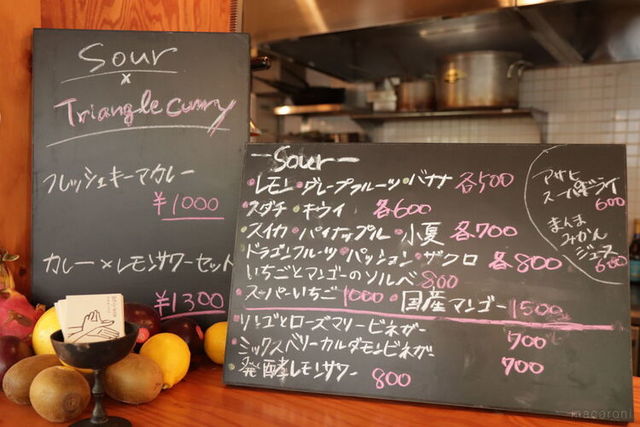 Sour
×
Triangle curry
フレッシュキーマカレー
¥1000
カレー×レモンサワーセット
¥1300
ーSourー
・レモン・グレープフルーツ・バナナ 各500
・スダチ・キウイ 各600
・スイカ・パイナップル・小夏 各700
・ドラゴンフルーツ・パッション・ザクロ 各800
・いちごとマンゴーのソルベ 800
・スーパーいちご 1000 ・国産マンゴー 1500
・リンゴとローズマリービネガー 700
・ミックスベリーカルダモンビネガー 700
・発酵レモンサワー 800
アサヒ
スーパードライ
600
まんま
みかん
ジュース
600
macaroni